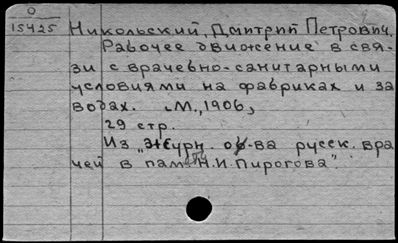 О
15425
Никольский, Дмитрий Петрович.
Рабочее движение в свя-
зи с врачебно-санитарными
условиями на фабриках и за
водах. М., 1906,
29 стр.
Из „Журн. о-ва русск. вра
чей в пам. Н.И. Пирогова".